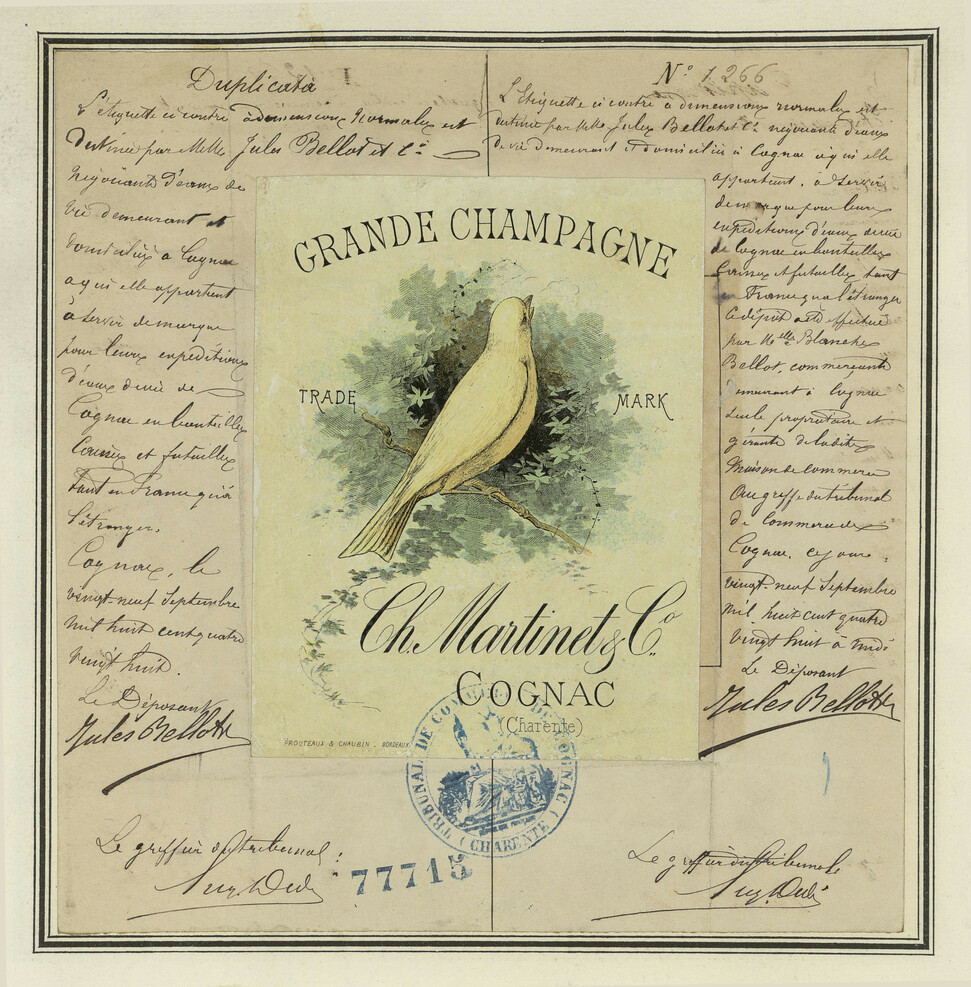 Duplicata
L'étiquette ci contre à dimensions normales est
destinée par MM. Jules Bellot et Cie
négociants d'eaux de
vie demeurant et
domiciliés à Cognac
à qui elle appartient
à servir de marque
pour leurs expéditions
d'eaux de vie de
Cognac en bouteilles
Caisses et futailles
tant en France qu'à
l'étranger.
Cognac, le
vingt-neuf Septembre
mil huit cent quatre
vingt huit.
Le Déposant
Jules Bellot
Le greffier du tribunal
N° 1266
L'Etiquette ci contre à dimensions normales est
destinée par MM. Jules Bellot et Cie négociants d'eaux
de vie demeurant et domiciliés à Cognac à qui elle
appartient, à servir
de marque pour leurs
expéditions d'eaux de vie
de Cognac en bouteilles
Caisses et futailles tant
en France qu'à l'étranger
Le dépôt a été effectué
par Mlle Blanche
Bellot, commerçante
demeurant à Cognac
seule propriétaire et
gérante de la dite
Maison de commerce
Au greffe du tribunal
de Commerce de
Cognac, ce jour
vingt-neuf Septembre
mil huit cent quatre
vingt huit à midi
Le Déposant
Jules Bellot
Le greffier du tribunal
GRANDE CHAMPAGNE
TRADE MARK
Ch. Martinet & Co.
COGNAC
(Charente)
PROUTEAUX & CHAUBIN . BORDEAUX
TRIBUNAL DE COMMERCE DE COGNAC
(CHARENTE)
77715